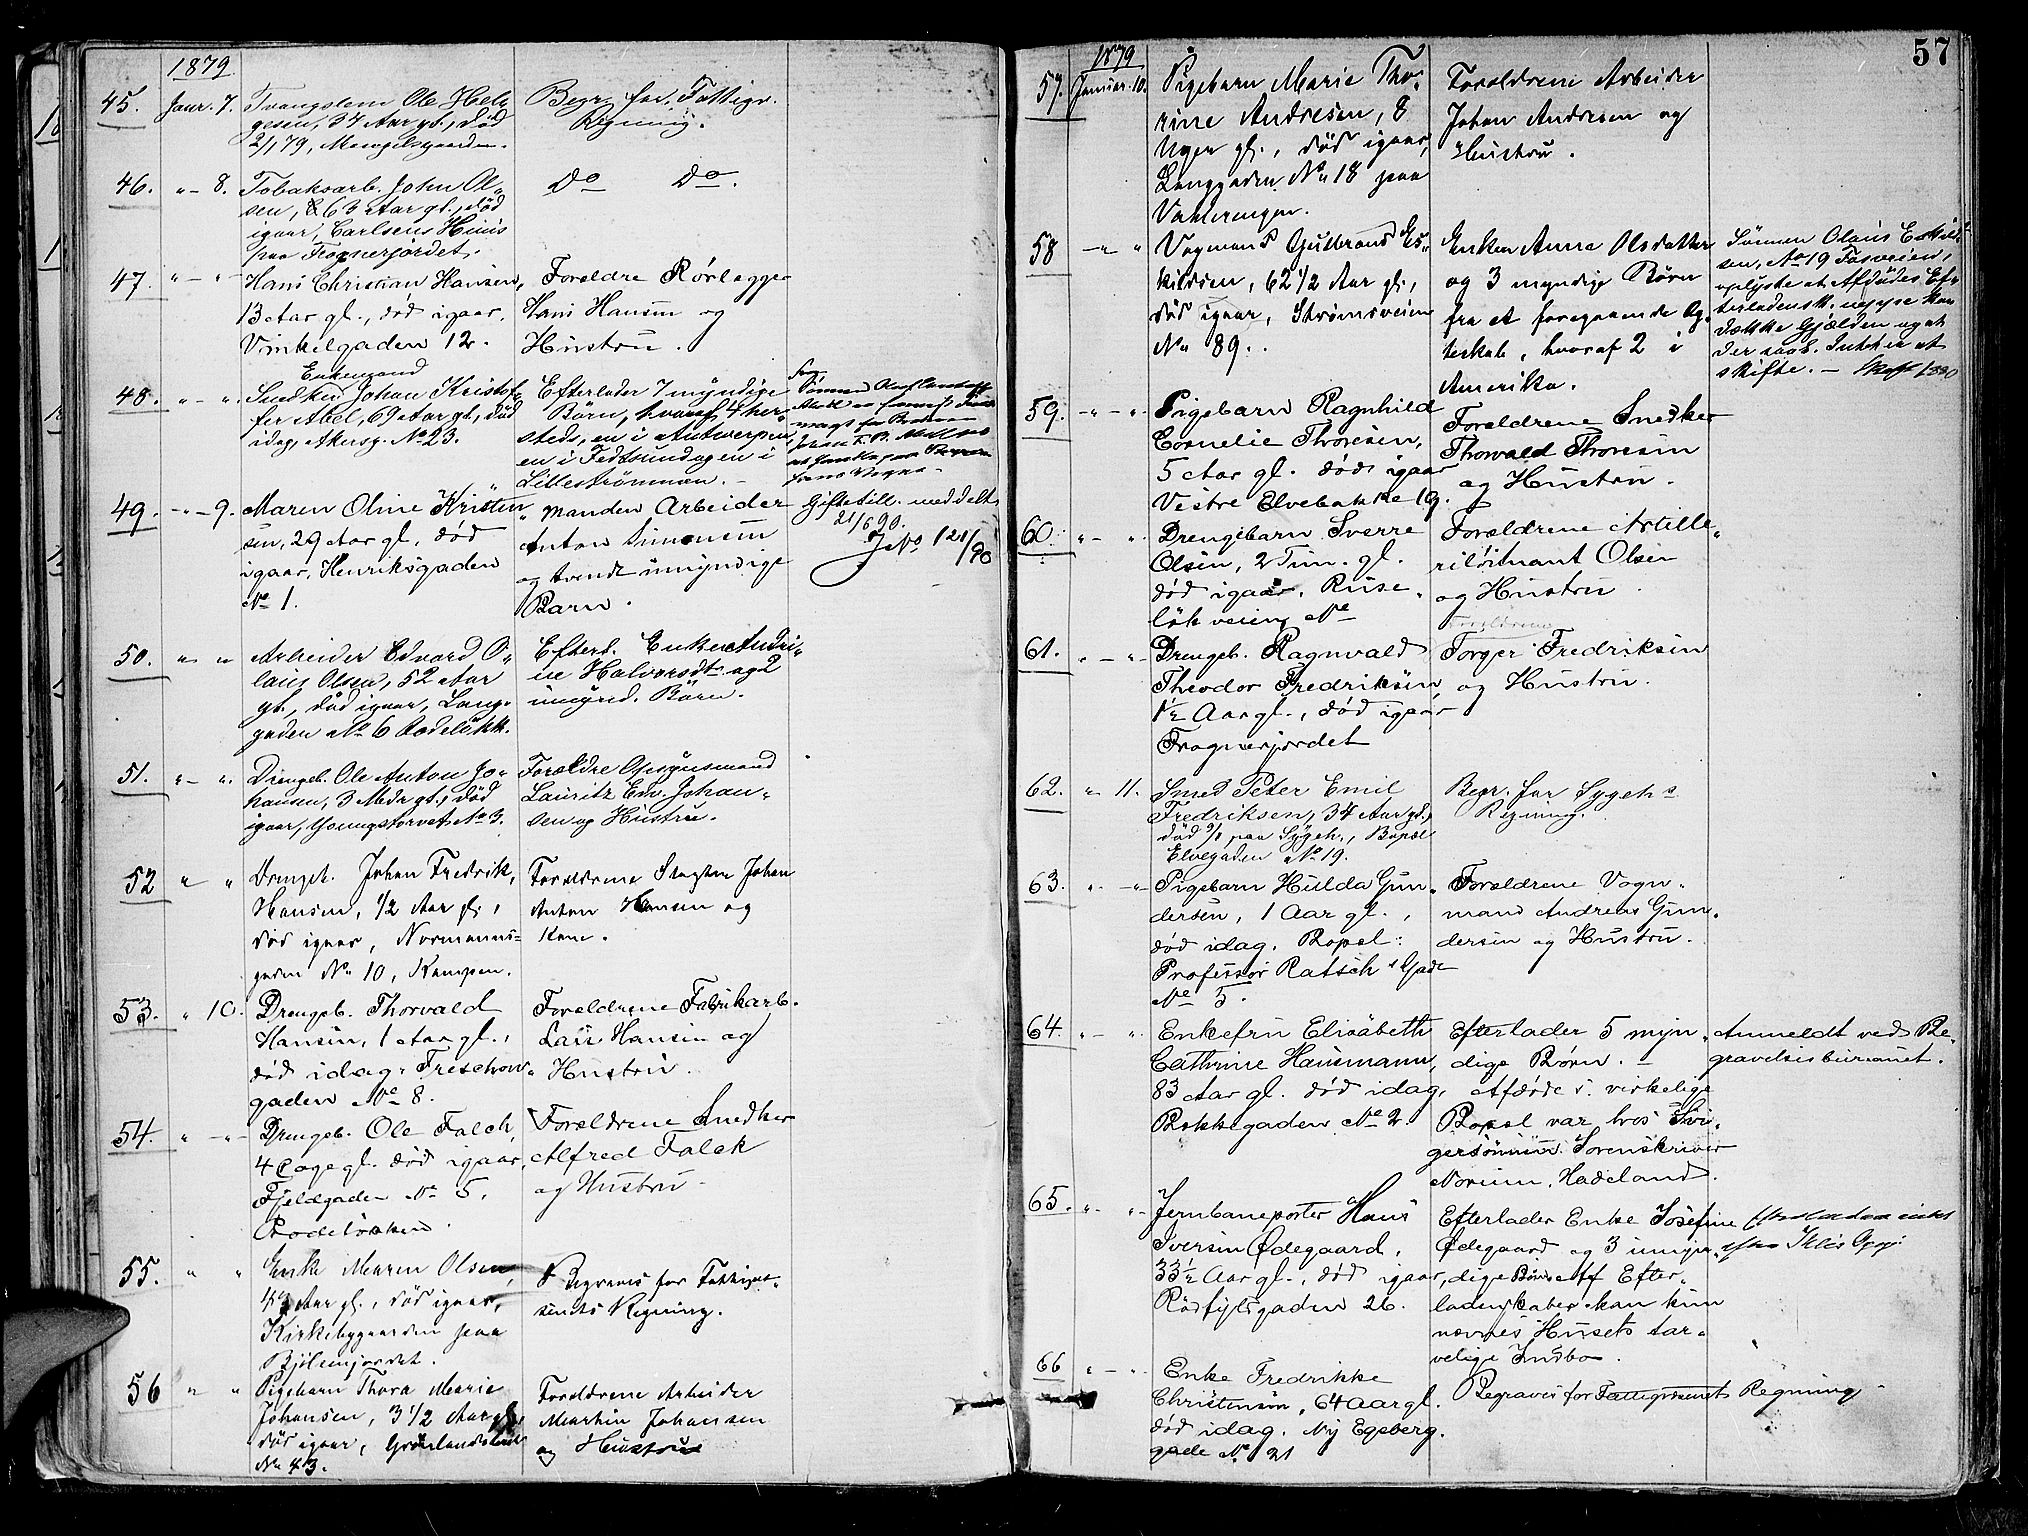 1879
45. Janr. 7. Tvangslem Ole Hel-
gesen, 34 Aar gl., død
2/1 79, Mangelsgaarden.
Begr. for Fattigv.
Regning.
46. " - 8. Tobaksarb. John Ol-
sen, 63 Aar gl., død
igaar, Carlsens Huus
paa Frognerjordet.
Do Do.
47. " - " Hans Christian Hansen,
13 Aar gl., død igaar.
Vinkelgaden 12.
Foraldre Rørlægger
Hans Hansen og
Hustru.
48. " - " Enkemand
Snedker Johan Kristof-
fer Abel, 69 Aar gl., død
idag, Akersg. No 23.
Efterlader 7 myndige
Børn, hvoraf 4 her-
steds, en i Antwerpen,
en i Fedtsund og en i
Lillestrømmen. -
49. " - 9. Maren Oline Kristen
sen, 29 Aar gl., død
igaar, Henriksgaden
No 1.
Manden Arbeider
Anton Simensen
og tvende umyndige
Barn.
Giftetill. meddelt
21/6 90.
J No 121/90
50. " " Arbeider Edvard O-
laus Olsen, 52 Aar
gl., død igaar, Lang-
gaden No 6 Rodeløkk.
Efterl. Enken Andri-
ne Halvorsdtr og 2
umynd. Børn.
51. " - " Drengeb. Ole Anton Jo-
hansen, 3 Mdr gl., død
igaar, Youngstorvet No 3.
Forældre Opsynsmand
Lauritz Edv. Johan-
sen og Hustru.
52 " " Drengeb. Johan Fredrik
Hansen, 1/2 Aar gl.,
død igaar, Normanns-
gaden No 10, Kampen.
Foraldrene Slagter Johan
Anton Hansen og
Kone.
53. " 10. Drengeb. Thorvald
Hansen, 1 Aar gl.,
død idag, Freschow-
gaden No 8.
Foraldrene Fabrikarb.
Lars Hansen og
Hustru.
54. " - " Drengeb. Ole Falck,
4 Dage gl. død igaar,
Fjeldgaden No 5.
Rodeløkken.
Foraldrene Snedker
Alfred Falck
og Hustru.
55. " " Enke Maren Olsen,
Aar gl., død igaar,
Kirkebygaarden paa
Bjølsenjordet.
Begraves for Fattigvæ-
senets Regning.
56 " " Pigebarn Thora Marie
Johansen, 3 1/2 Aar gl.
død igaar, Grønlandsleret
No 43.
Foraldrene Arbeider
Martin Johansen
og Hustru
57
1879
57. Januar. 10. Pigebarn Marie Tho-
rine Andresen, 8
Uger gl., død igaar,
Langgaden No 18 paa
Vaalerengen.
Foraldrene Arbeider
Johan Andresen og
Hustru.
58 - " " Vognmand Gulbrand Es-
kildsen, 62 1/2 Aar gl.,
død igaar, Strømsveien
No 89.
Enken Anna Olsdatter
og 3 myndige Børn
fra et foregaaende Æg-
teskab, hvoraf 2 i
Amerika.
Sønnen Olaus Eskild-
sen, No 19 Tøsveien,
oplyste at Afdødes Ef-
terladensk. neppe kan
dække Gjælden og at
der saal. Intet er at
skifte. -
59. - " - " Pigebarn Ragnhild
Cornelie Thoresen,
5 Aar gl. død igaar
Vestre Elvebakke 19.
Foraldrene Snedker
Thorvald Thoresen
og Hustru.
60. " - " Drengebarn Sverre
Olsen, 2 Tim. gl.
død igaar. Ruse-
løkveien No
Foraldrene Artille-
riløitnant Olsen
og Hustru.
61. " - " Drengeb. Ragnvald
Theodor Fredriksen,
1 1/2 Aar gl., død igaar
Frognerjordet
Foraldrene
Torger Fredriksen
og Hustru.
62. " 11. Smed Peter Emil
Fredriksen, 34 Aar gl.,
død 9/1 paa Sygeh., Bopæl
Elvegaden No 19.
Begr. for Sygeh s
Regning.
63. " - " Pigebarn Hulda Gun-
dersen, 1 Aar gl.,
død idag. Bopæl:
Professor Ratsch's Gade
No 5.
Foraldrene Vogn-
mand Andreas Gun-
dersen og Hustru.
64. " - " Enkefru Elisabeth
Cathrine Hausmann,
83 Aar gl. død idag,
Bakkegaden No 2
Efterlader 5 myn-
dige Børn. -
Afdøde s. virkelige
Bopæl var hos Svi-
gersønnen Sorenskriver
Norum, Hadeland.
Anmeldt ved Be-
gravelsesbureauet.
65. " - " Jernbaneporter Hans
Iversen Ødegaard,
33 1/2 Aar gl., død igaar,
Rødfyldsgaden 26.
Efterlader Enke Josefine
Ødegaard og 3 umyn-
dige Børn. Af Efter-
ladenskaber kan kun
nævnes Husets tar-
velige Indbo.
66 " - " Enke Fredrikke
Christensen, 64 Aar gl.
død idag. Ny Egeberg-
gade No 21
Begraves for Fattigvæsenets Regning